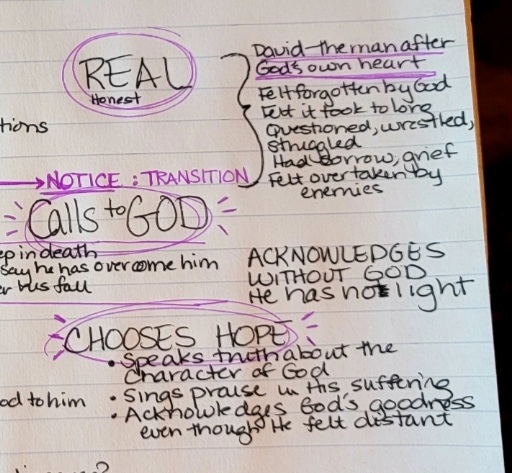 REAL
Honest
David-the man after
God's own heart
Felt forgotten by God
Felt it took to long
Questioned, wrestled,
struggled
Had sorrow, grief
Felt overtaken by
enemies
tions
NOTICE : TRANSITION
Calls to GOD
ep in death
say he has overcome him
er his fall
ACKNOWLEDGES
WITHOUT GOD
He has not light
CHOOSES HOPE
• Speaks truth about the
Character of God
• Sings praise in His suffering
• Acknowledges God's goodness
even though He felt distant
od to him